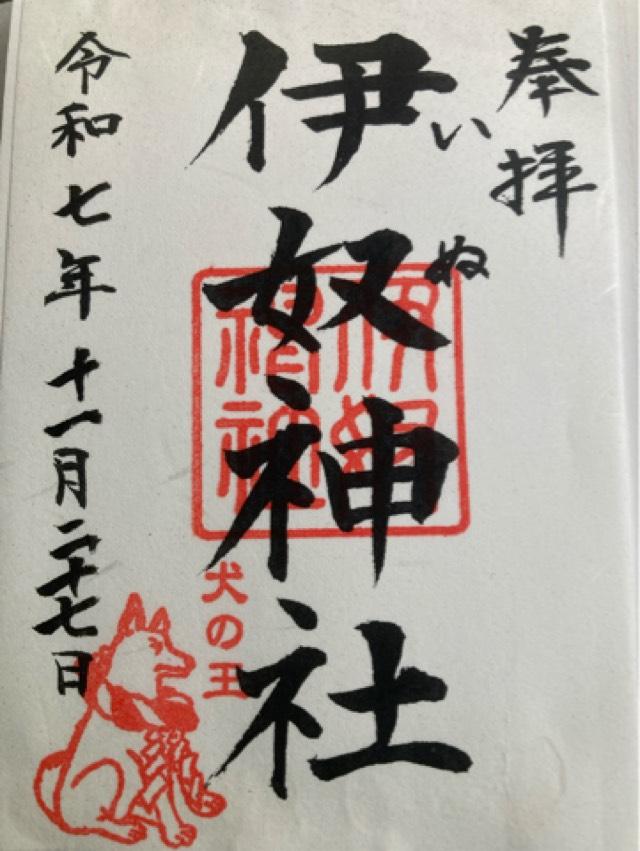 奉拝
伊奴神社
いぬ
犬の王
令和七年十一月二十七日